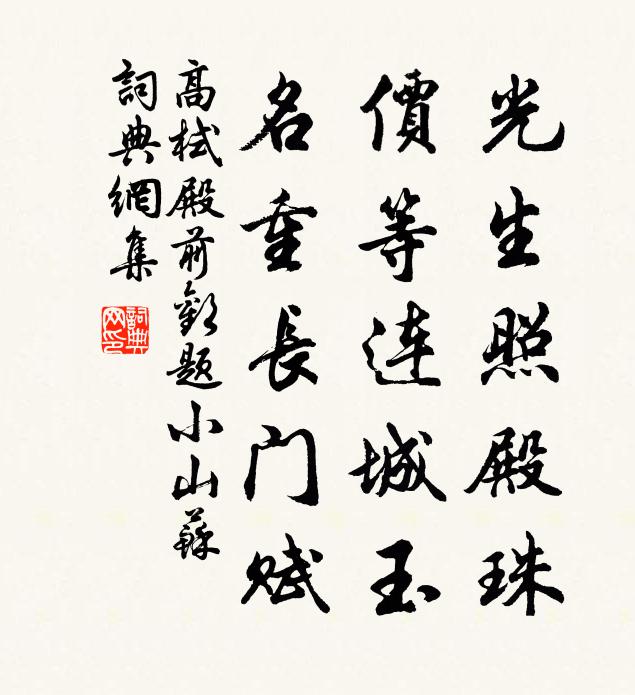 光生照殿珠
價等連城玉
名重長门赋
高栻殿前歡题小山蘇
詞典網集
詞典
网印